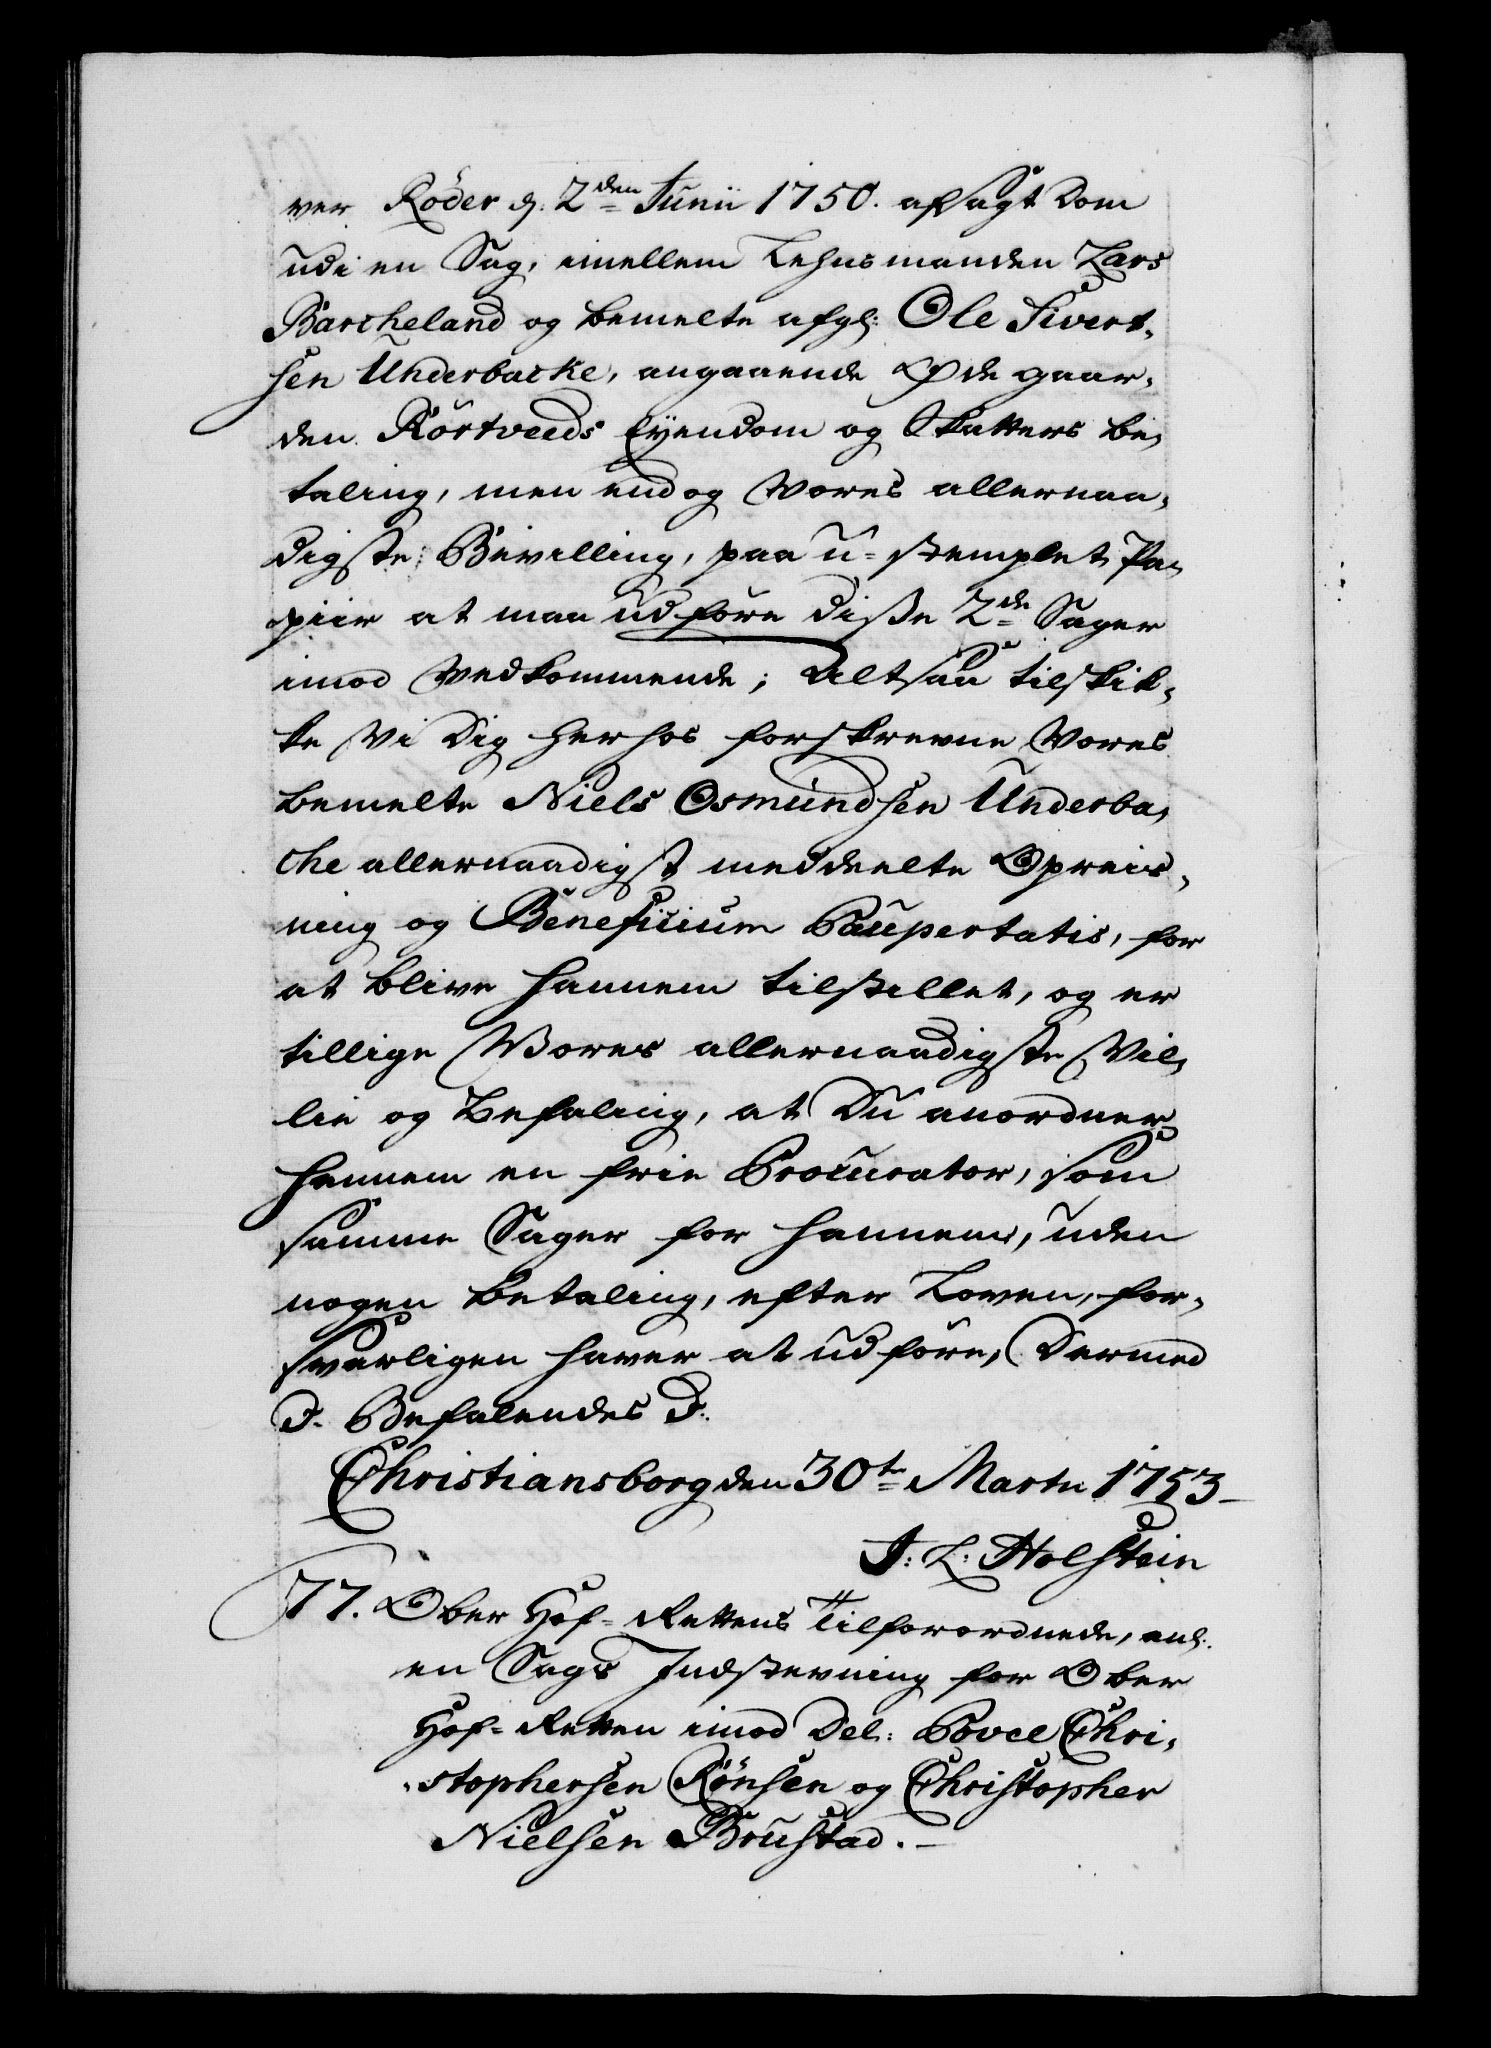 ver Röder d: 2den Junii 1750. afsagt Dom
udi en Sag, imellem Lehnsmanden Lars
Barcheland og bemelte afgl: Ole Sivert-
sen Underbacke, angaaende Øde gaar-
den Rörtveeds Eyendom og Skatters be-
taling, men endog Vores allernaa-
digste Bevilling, paa u-stemplet Pa-
piir at maa udføre disse 2de Sager
imod Vedkommende; Altsaa tilskik-
ke Vi Dig herhos forskrevne Vores
bemelte Niels Osmundsen Underba-
che allernaadigst meddeelte Opreis-
ning og Beneficium Paupertatis, for
at blive hannem tilstillet, og er
tillige Vores allernaadigste Vil-
lie og Befaling, at Du anordner
hannem en frie Procurator, som
samme Sager for hannem, uden
nogen betaling, efter Loven, for-
svarligen haver at udføre, Dermed
D. Befalendes D:
Christiansborg den 30te Martii 1753
J: L: Holstein
77. Ober Hof-Rettens Tilforordnede, anl:
en Sags Indstevning for Ober
Hof-Retten imod Del: Povel Chri-
stophersen Rönsen og Christopher
Nielsen Brustad.